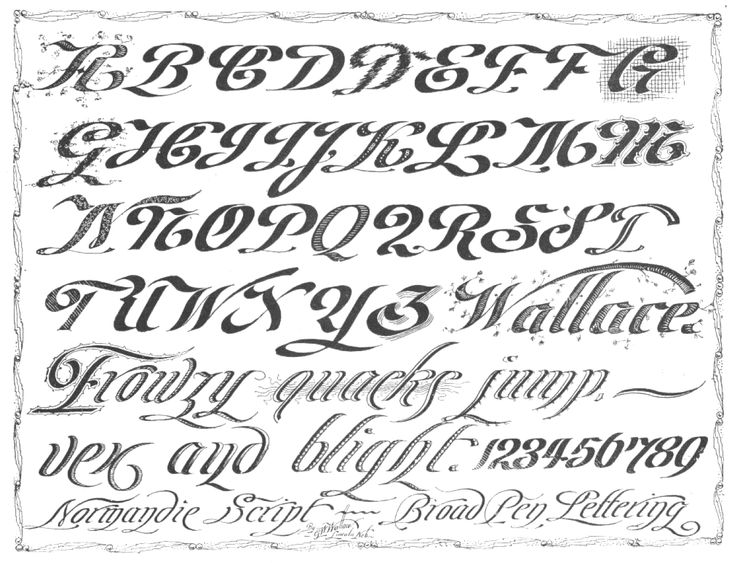 A B C D D E E F G
G H I I J K L M M
N N O P Q Q R S S T
T U W X Y Z Wallace.
Frowzy quacks jump,
vex and blight. 1234567890
Normandie Script for Broad Pen Lettering
Wallace
Lincoln, Neb.